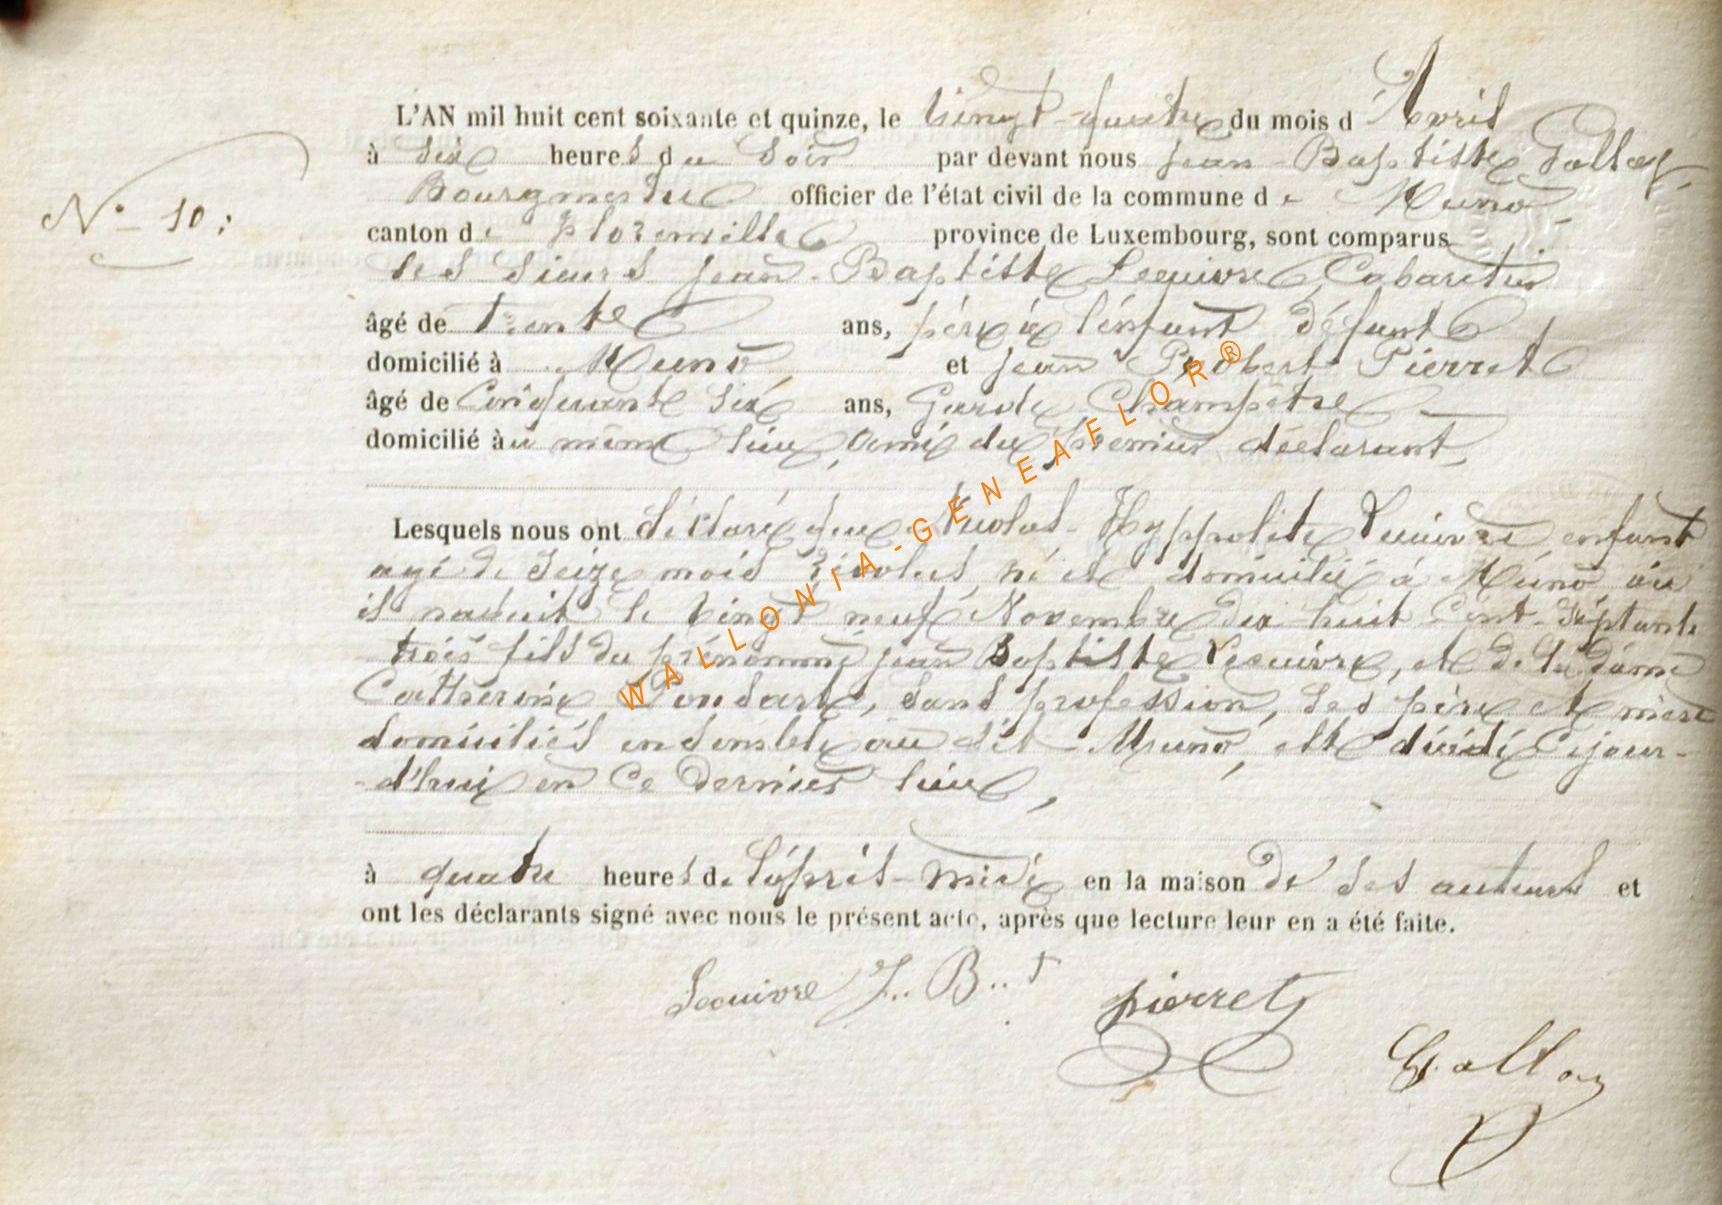 L'AN mil huit cent soixante et quinze, le vingt-quatre du mois d'Avril
à six heures du soir par devant nous Jean-Baptiste Gallay,
Bourgmestre officier de l'état civil de la commune de Muno,
canton de Florenville province de Luxembourg, sont comparus
les sieurs Jean-Baptiste Lecuivre, Cabaretier
âgé de Trente ans, père de l'enfant défunt
domicilié à Muno, et Jean Robert Pierret
âgé de Cinquante six ans, Garde Champêtre
domicilié au même lieu, ami du premier déclarant,
Lesquels nous ont déclaré que Nicolas-Hyppolite Lecuivre, enfant
agé de Seize mois révolus, né et domicilié à Muno où
il naquit le vingt neuf Novembre dix huit Cent-Septante
trois fils du prénommé Jean Baptiste Lecuivre, et de la dame
Catherine Ponsart, sans profession, ses père et mère
domiciliés ensemble au dit Muno, est décédé Cejour-
-d'hui en Ce dernier lieu,
à quatre heures de l'après-midi en la maison de ses auteurs et
ont les déclarants signé avec nous le présent acte, après que lecture leur en a été faite.
N° 10:
Lecuivre J.. B..t
Pierret
Gallay
WALLONIA-GENEAFLOR®